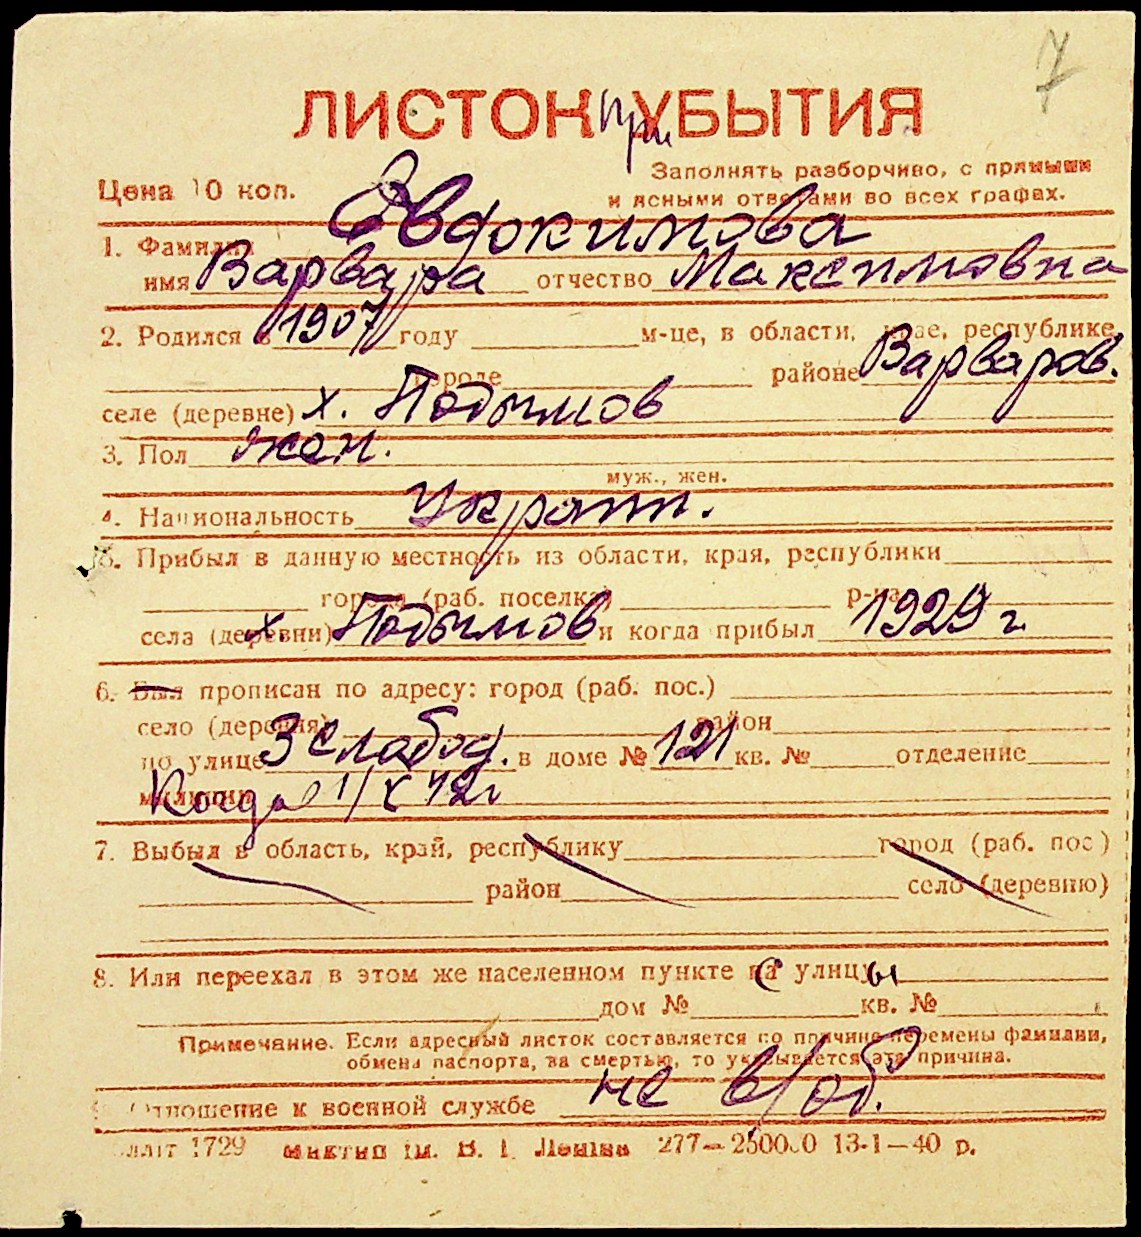 7
ЛИСТОК при УБЫТИЯ
Цена 10 коп.
Заполнять разборчиво, с прямыми
и ясными ответами во всех графах.
Евдокимова
1. Фамилия
имя Варвара отчество Максимовна
2. Родился в 1907 году м-це, в области, крае, республике
городе районе Варваров.
селе (деревне) х. Подымов
3. Пол жен.
муж., жен.
4. Национальность Украин.
5. Прибыл в данную местность из области, края, республики
города (раб. поселка) р-на
села (деревни) х. Подымов и когда прибыл 1929 г.
6. Был прописан по адресу: город (раб. пос.)
село (деревня) район
по улице 3 слабод. в доме № 121 кв. № отделение
милиции Когда 1/X 42г
7. Выбыл в область, край, республику город (раб. пос)
район село (деревню)
8. Или переехал в этом же населенном пункте с улицы
дом № кв. №
Примечание. Если адресный листок составляется по причине перемены фамилии,
обмена паспорта, за смертью, то указывается эта причина.
9. Отношение к военной службе не в/об.
1729 им. В. І. Леніна 277—250000 13-1—40 р.